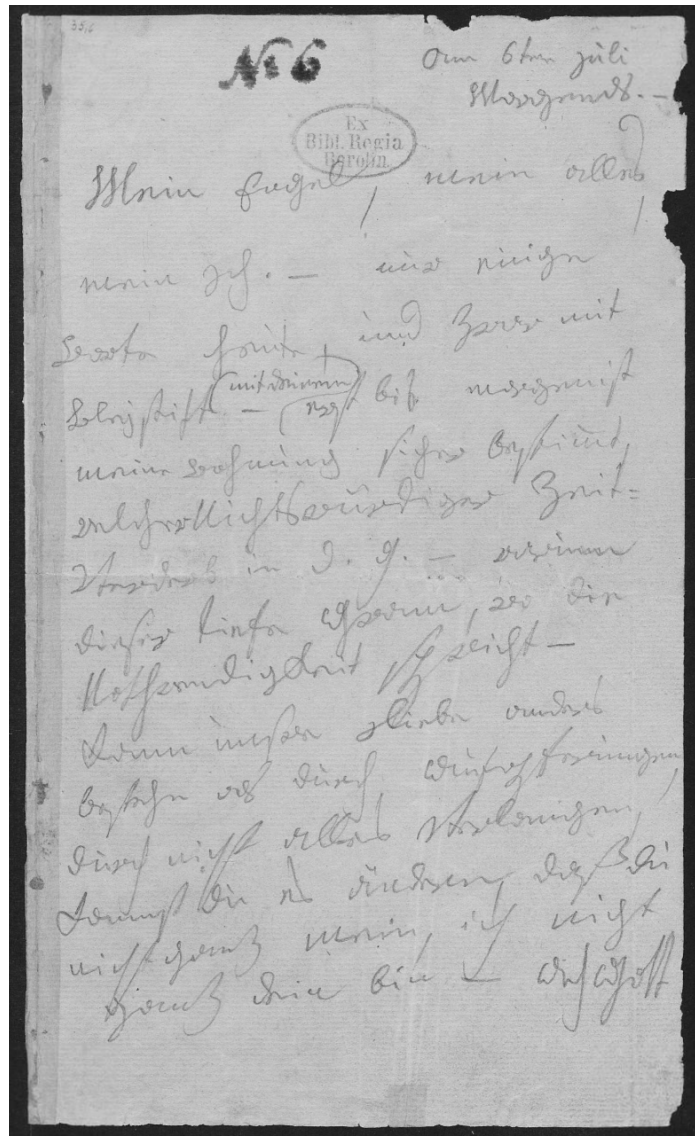 35,6
№ 6
am 6ten juli
Morgends. –
Ex
Bibl. Regia
Berolin.
Mein Engel, mein alles,
mein Ich. – nur einige
worte heute, und zwar mit
Bleystift – (mit deinem)
erst bis morgen ist
meine wohnung sicher bestimmt,
welcher Nichtswürdiger Zeit-
Verderb in d. g. – warum
dieser tiefe Gram, wo die
Nothwendigkeit spricht –
Kann unsre Liebe anders
bestehn als durch Aufopferungen,
durch nicht alles Verlangen,
kannst du es ändern, daß du
nicht ganz mein, ich nicht
ganz dein bin – Ach Gott